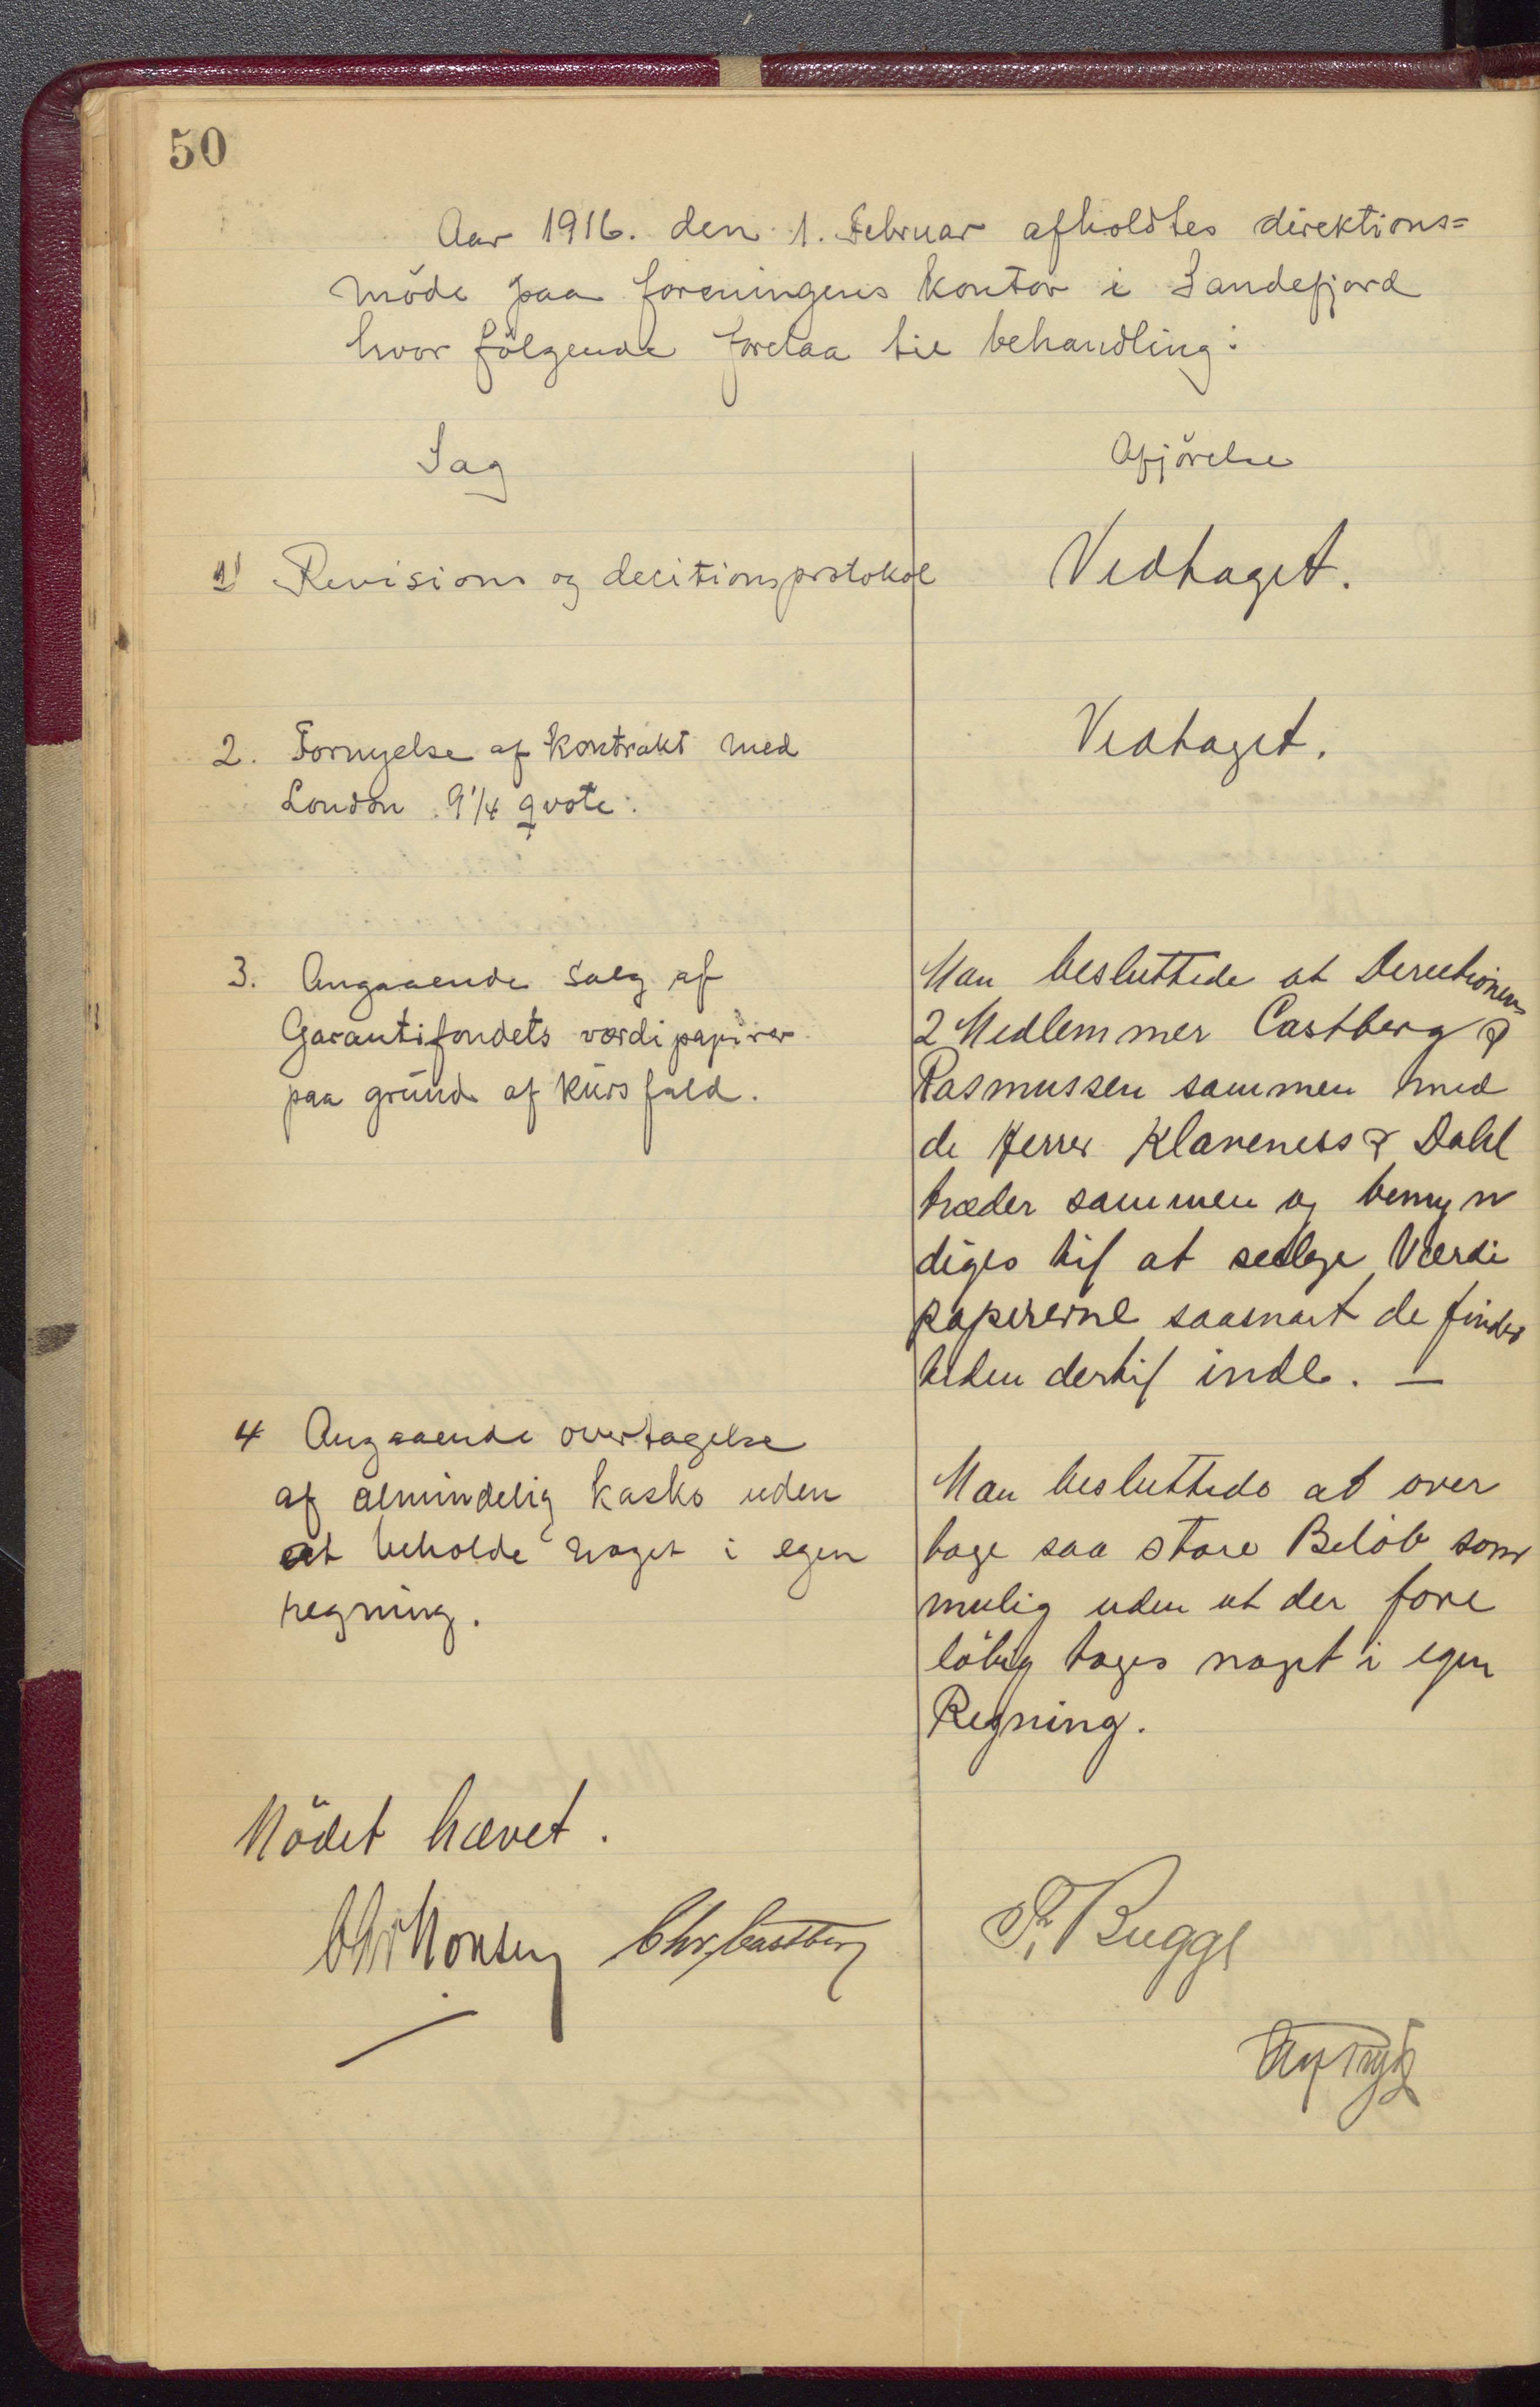 50
Aar 1916. den 1. Februar afholdtes direktions=
möde paa foreningens kontor i Sandefjord
hvor fölgende forelaa til behandling:
Sag
Afjörelse
1) Revisions og decitionsprotokol
Vedtaget.
2. Fornyelse af kontrakt med
London 9 1/4 qvote.
Vedtaget.
3. Angaaende salg af
Garantifondets værdipapirer
paa grund af kursfald.
Man besluttede at Directionens
2 Medlemmer Castberg &
Rasmussen sammen med
de Herrer Klaveness & Dahl
træder sammen og bemyn
diges til at sælge Værdi
papirerne saasnart de finder
tiden dertil inde. —
4 Angaaende overtagelse
af almindelig kasko uden
at beholde noget i egen
regning.
Man besluttede at over
tage saa store Belöb som
mulig uden at der fore
löbig tages noget i egen
Regning.
Mödet hævet.
Chr Monsen Chr. Castberg
Bugge